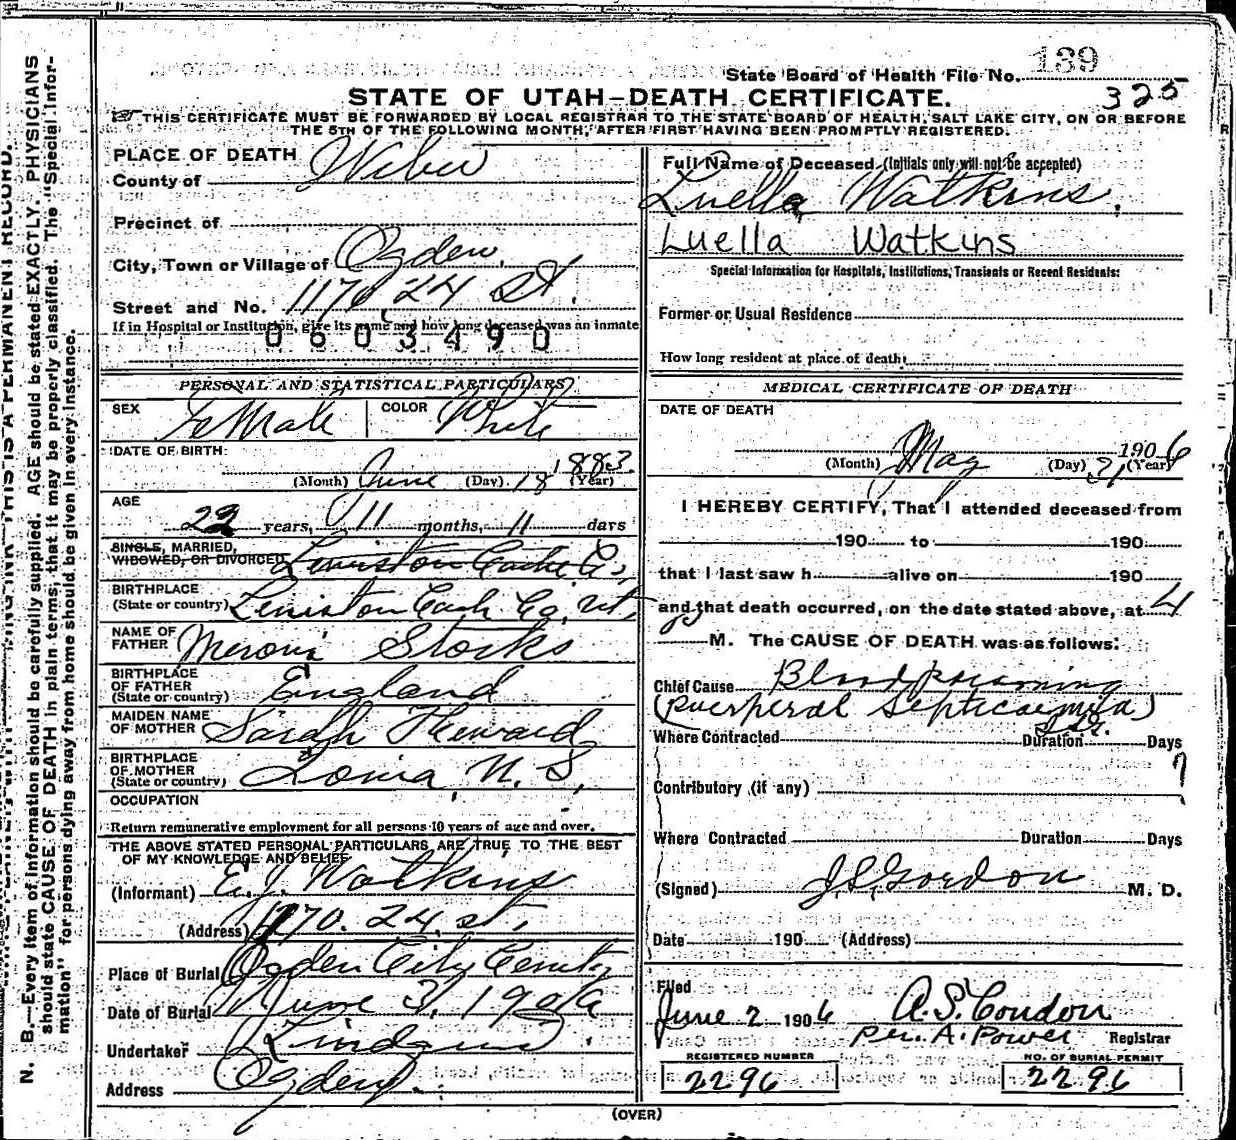 N. B.—Every item of information should be carefully supplied. AGE should be stated EXACTLY. PHYSICIANS
should state CAUSE OF DEATH in plain terms, that it may be properly classified. The "Special Infor-
mation" for persons dying away from home should be given in every instance.
139
State Board of Health File No.
325
STATE OF UTAH—DEATH CERTIFICATE.
THIS CERTIFICATE MUST BE FORWARDED BY LOCAL REGISTRAR TO THE STATE BOARD OF HEALTH, SALT LAKE CITY, ON OR BEFORE
THE 5TH OF THE FOLLOWING MONTH, AFTER FIRST HAVING BEEN PROMPTLY REGISTERED.
PLACE OF DEATH
County of Weber
Precinct of
City, Town or Village of Ogden.
Street and No. 1170 24 St.
If in Hospital or Institution, give its name and how long deceased was an inmate
0603490
PERSONAL AND STATISTICAL PARTICULARS
SEX Female COLOR White
DATE OF BIRTH:
June 18 1883
(Month) (Day) (Year)
AGE
22 years, 11 months, 11 days
SINGLE, MARRIED,
WIDOWED, OR DIVORCED Lewiston Cache Co.,
BIRTHPLACE
(State or country) Lewiston Cach Co. Ut,
NAME OF
FATHER Meroni Stocks
BIRTHPLACE
OF FATHER
(State or country) England
MAIDEN NAME
OF MOTHER Sarah Heward
BIRTHPLACE
OF MOTHER
(State or country) U. S,
OCCUPATION
Return remunerative employment for all persons 10 years of age and over.
THE ABOVE STATED PERSONAL PARTICULARS ARE TRUE TO THE BEST
OF MY KNOWLEDGE AND BELIEF
(Informant) E. J. Watkins
(Address) 1170. 24. st,
Place of Burial Ogden City
Date of Burial June 3, 1906
Undertaker
Address Ogden
Full Name of Deceased (Initials only will not be accepted)
Luella Watkins.
Luella Watkins
Special Information for Hospitals, Institutions, Transients or Recent Residents:
Former or Usual Residence
How long resident at place of death
MEDICAL CERTIFICATE OF DEATH
DATE OF DEATH
May 31 1906
(Month) (Day) (Year)
I HEREBY CERTIFY, That I attended deceased from
190 to 190
that I last saw h alive on 190
and that death occurred, on the date stated above, at 4
M. The CAUSE OF DEATH was as follows:
Chief Cause Blood poisoning
(Puerperal Septicaemia)
Where Contracted Duration Days
7
Contributory (if any)
Where Contracted Duration Days
(Signed) J.S. Gordon M. D.
Date 190 (Address)
Filed
June 2 1906 A.S. Condon
Per. A. Power Registrar
REGISTERED NUMBER NO. OF BURIAL PERMIT
2296 2296
(OVER)